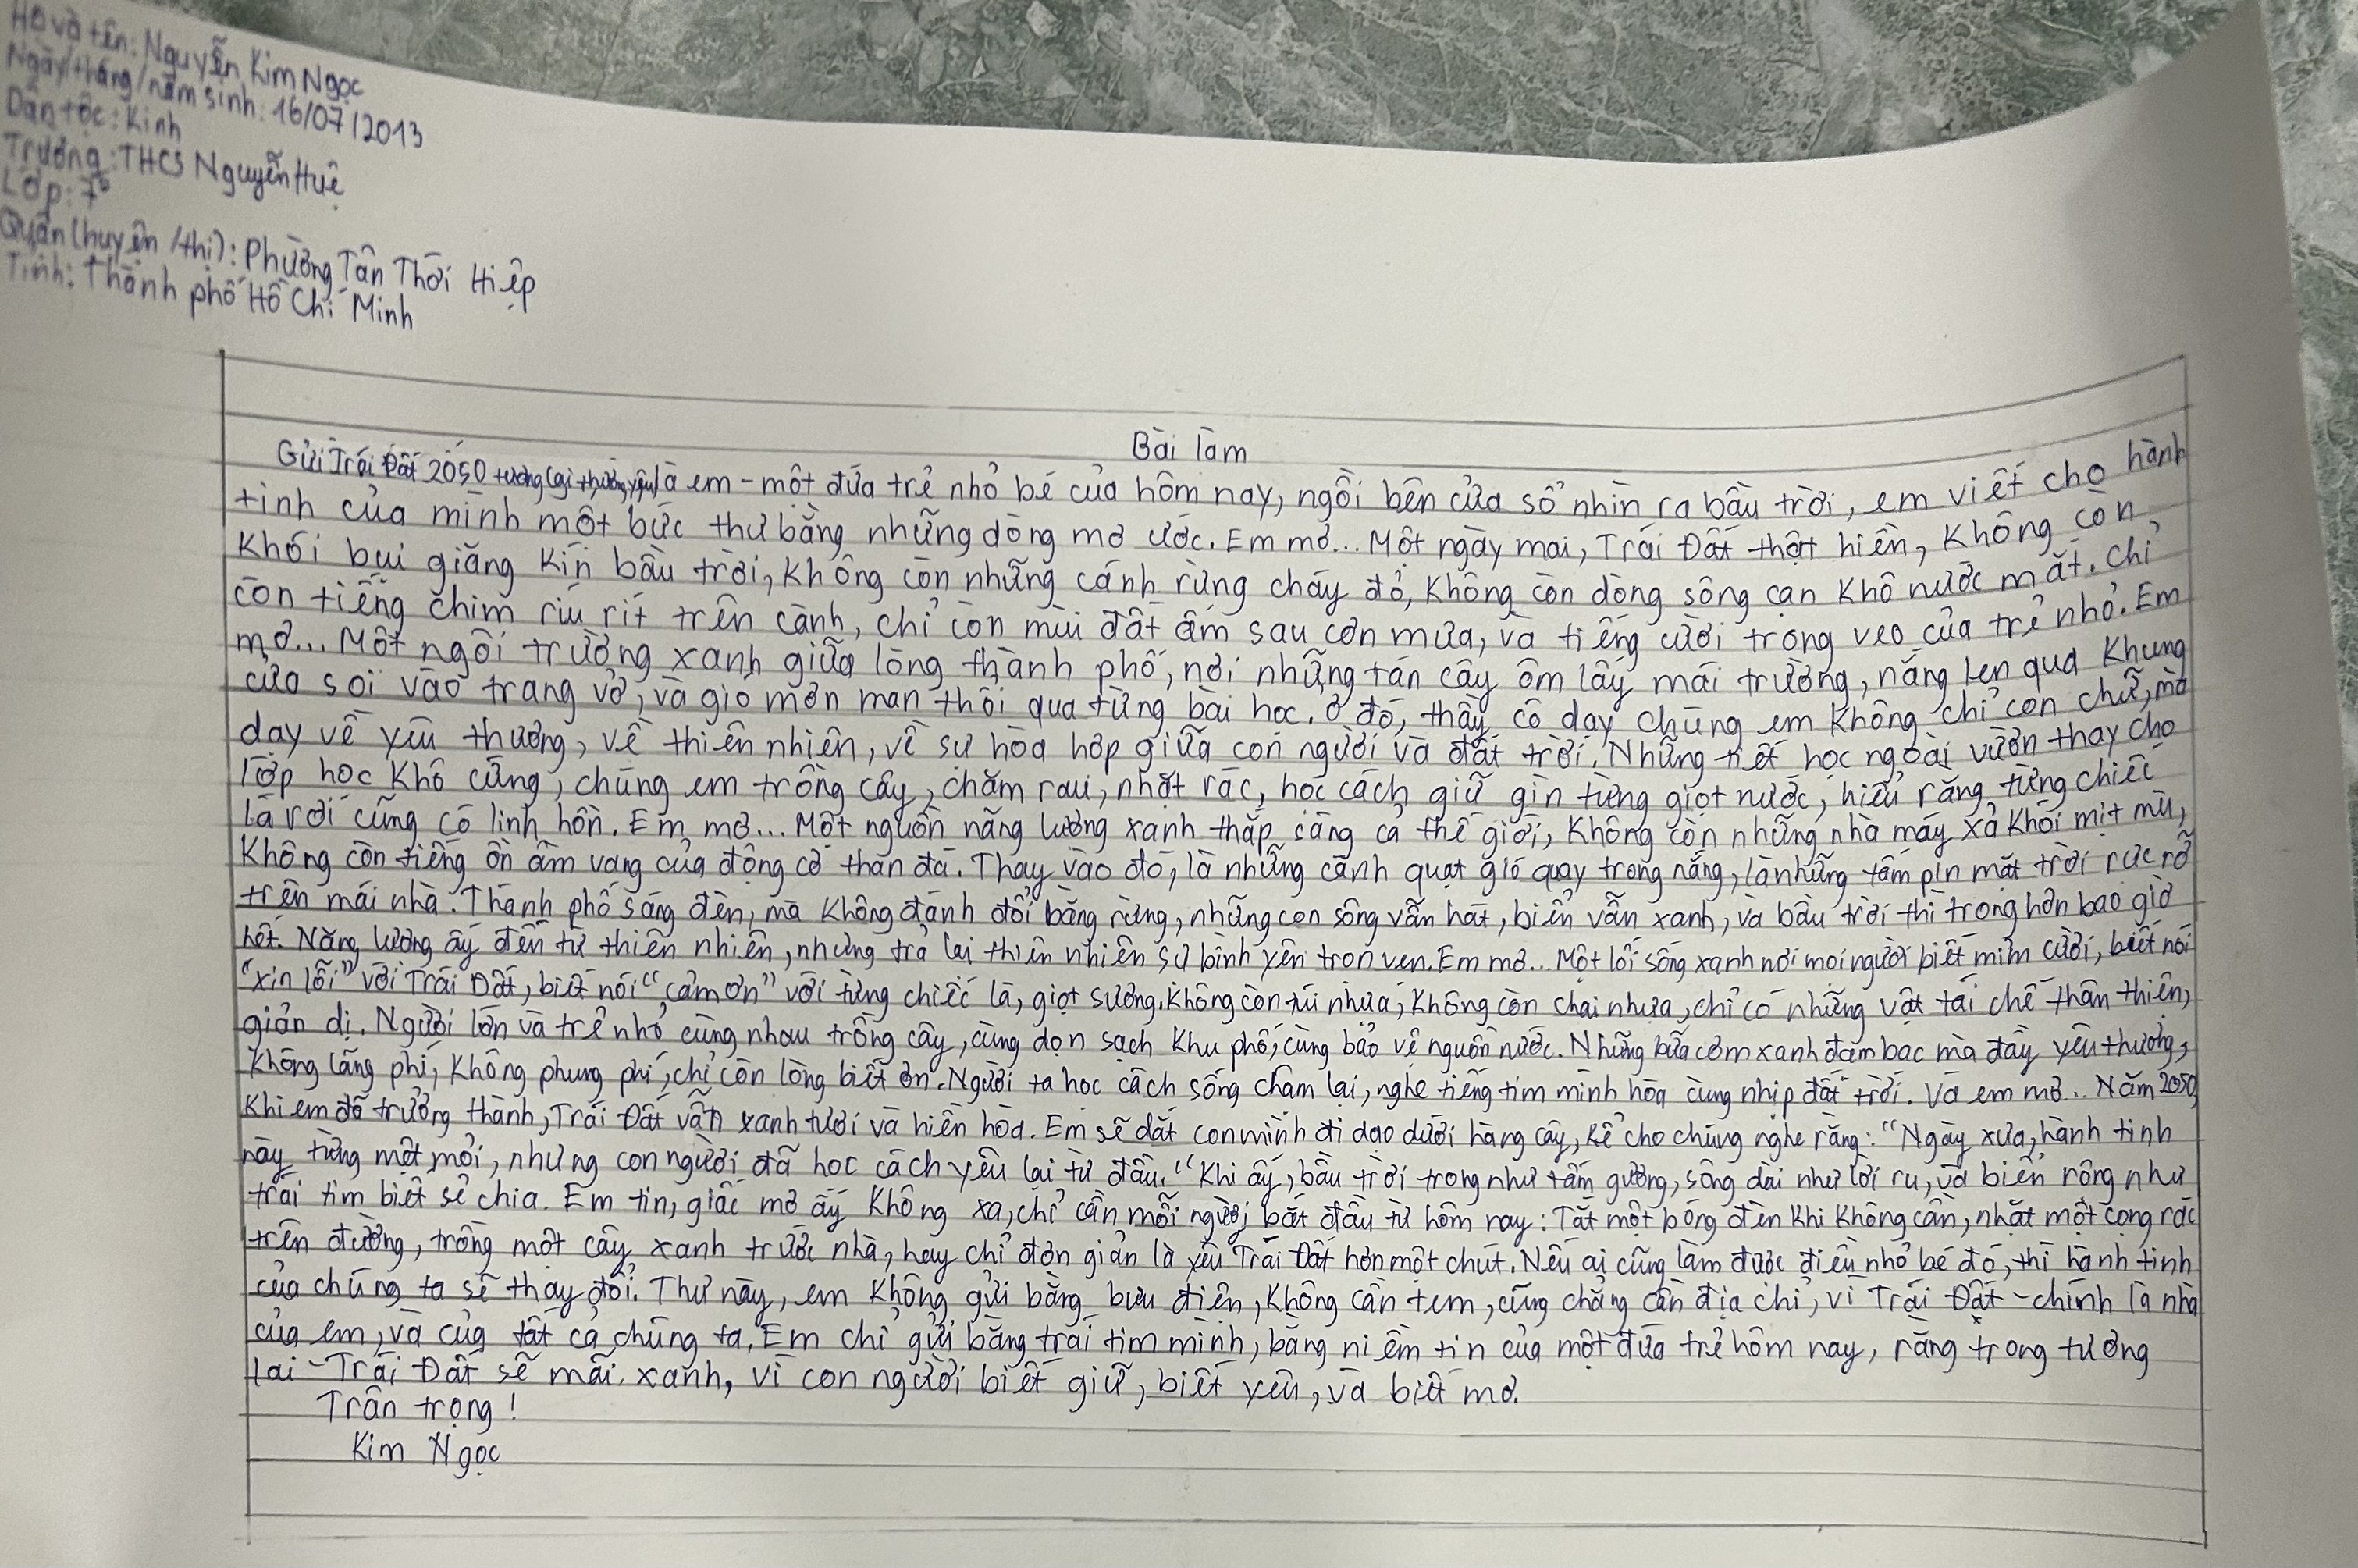 Họ và tên: Nguyễn Kim Ngọc
Ngày/tháng/năm sinh: 16/07/2013
Dân tộc: Kinh
Trường: THCS Nguyễn Huệ
Lớp: 7
Quận (huyện/thị): Phường Tân Thới Hiệp
Tỉnh: Thành phố Hồ Chí Minh
Bài làm
Gửi Trái Đất 2050 tương lai thương yêu là em - một đứa trẻ nhỏ bé của hôm nay, ngồi bên cửa sổ nhìn ra bầu trời, em viết cho hành
tinh của mình một bức thư bằng những dòng mơ ước. Em mơ... Một ngày mai, Trái Đất thật hiền, Không còn
Khói bụi giăng Kín bầu trời, Không còn những cánh rừng cháy đỏ, Không còn dòng sông cạn Khô nước mắt. Chỉ
còn tiếng chim ríu rít trên cành, chỉ còn mùi đất ấm sau cơn mưa, và tiếng cười trong veo của trẻ nhỏ. Em
mơ... Một ngôi trường xanh giữa lòng thành phố, nơi những tán cây ôm lấy mái trường, nắng len qua Khung
cửa soi vào trang vở, và gió mơn man thổi qua từng bài học. Ở đó, thầy cô dạy chúng em Không chỉ con chữ, mà
dạy về yêu thương, về thiên nhiên, về sự hòa hợp giữa con người và đất trời. Những tiết học ngoài vườn thay cho
lớp học Khô cứng, chúng em trồng cây, chăm rau, nhặt rác, học cách giữ gìn từng giọt nước, hiểu rằng từng chiếc
lá rơi cũng có linh hồn. Em mơ... Một nguồn năng lượng xanh thắp sáng cả thế giới, Không còn những nhà máy xả Khói mịt mù,
Không còn tiếng ồn ầm vang của động cơ than đá. Thay vào đó, là những cánh quạt gió quay trong nắng, là những tấm pin mặt trời rực rỡ
trên mái nhà. Thành phố sáng đèn, mà Không đánh đổi bằng rừng, những con sông vẫn hát, biển vẫn xanh, và bầu trời thì trong hơn bao giờ
hết. Năng lượng ấy đến từ thiên nhiên, nhưng trả lại thiên nhiên sự bình yên trọn vẹn. Em mơ... Một lối sống xanh nơi mọi người biết mỉm cười, biết nói
"xin lỗi" với Trái Đất, biết nói "cảm ơn" với từng chiếc lá, giọt sương. Không còn túi nhựa, Không còn chai nhựa, chỉ có những vật tái chế thân thiện,
giản dị. Người lớn và trẻ nhỏ cùng nhau trồng cây, cùng dọn sạch Khu phố, cùng bảo vệ nguồn nước. Những bữa cơm xanh đạm bạc mà đầy yêu thương,
Không lãng phí, Không phung phí, chỉ còn lòng biết ơn. Người ta học cách sống chậm lại, nghe tiếng tim mình hòa cùng nhịp đất trời. Và em mơ... Năm 2050,
Khi em đã trưởng thành, Trái Đất vẫn xanh tươi và hiền hòa. Em sẽ dắt con mình đi dạo dưới hàng cây, Kể cho chúng nghe rằng: "Ngày xưa, hành tinh
này từng mệt mỏi, nhưng con người đã học cách yêu lại từ đầu." Khi ấy, bầu trời trong như tấm gương, sông dài như lời ru, và biển rộng như
trái tim biết sẻ chia. Em tin, giấc mơ ấy Không xa, chỉ cần mỗi người bắt đầu từ hôm nay: Tắt một bóng đèn Khi Không cần, nhặt một cọng rác
trên đường, trồng một cây xanh trước nhà, hay chỉ đơn giản là yêu Trái Đất hơn một chút. Nếu ai cũng làm được điều nhỏ bé đó, thì hành tinh
của chúng ta sẽ thay đổi. Thư này, em Không gửi bằng bưu điện, Không cần tem, cũng chẳng cần địa chỉ, vì Trái Đất - chính là nhà
của em, và của tất cả chúng ta. Em chỉ gửi bằng trái tim mình, bằng niềm tin của một đứa trẻ hôm nay, rằng trong tương
lai - Trái Đất sẽ mãi xanh, vì con người biết giữ, biết yêu, và biết mơ.
Trân trọng!
Kim Ngọc